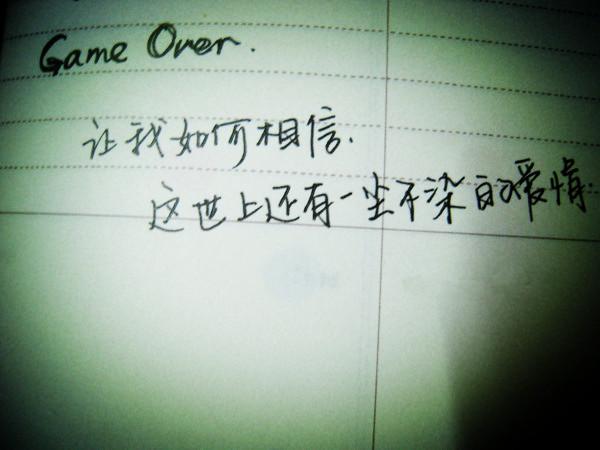 Game Over.
让我如何相信.
这世上还有一尘不染的爱情